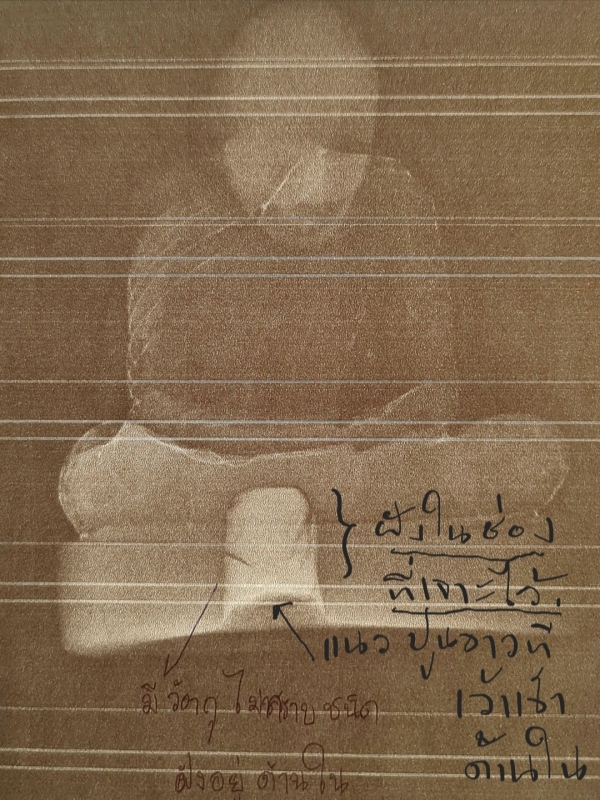 ฝังในช่อง
ที่เจาะไว้.
แนวปูนขาวที่
เว้าเข้า
ด้านใน
มีวัตถุไม่ทราบชนิด
ฝังอยู่ด้านใน